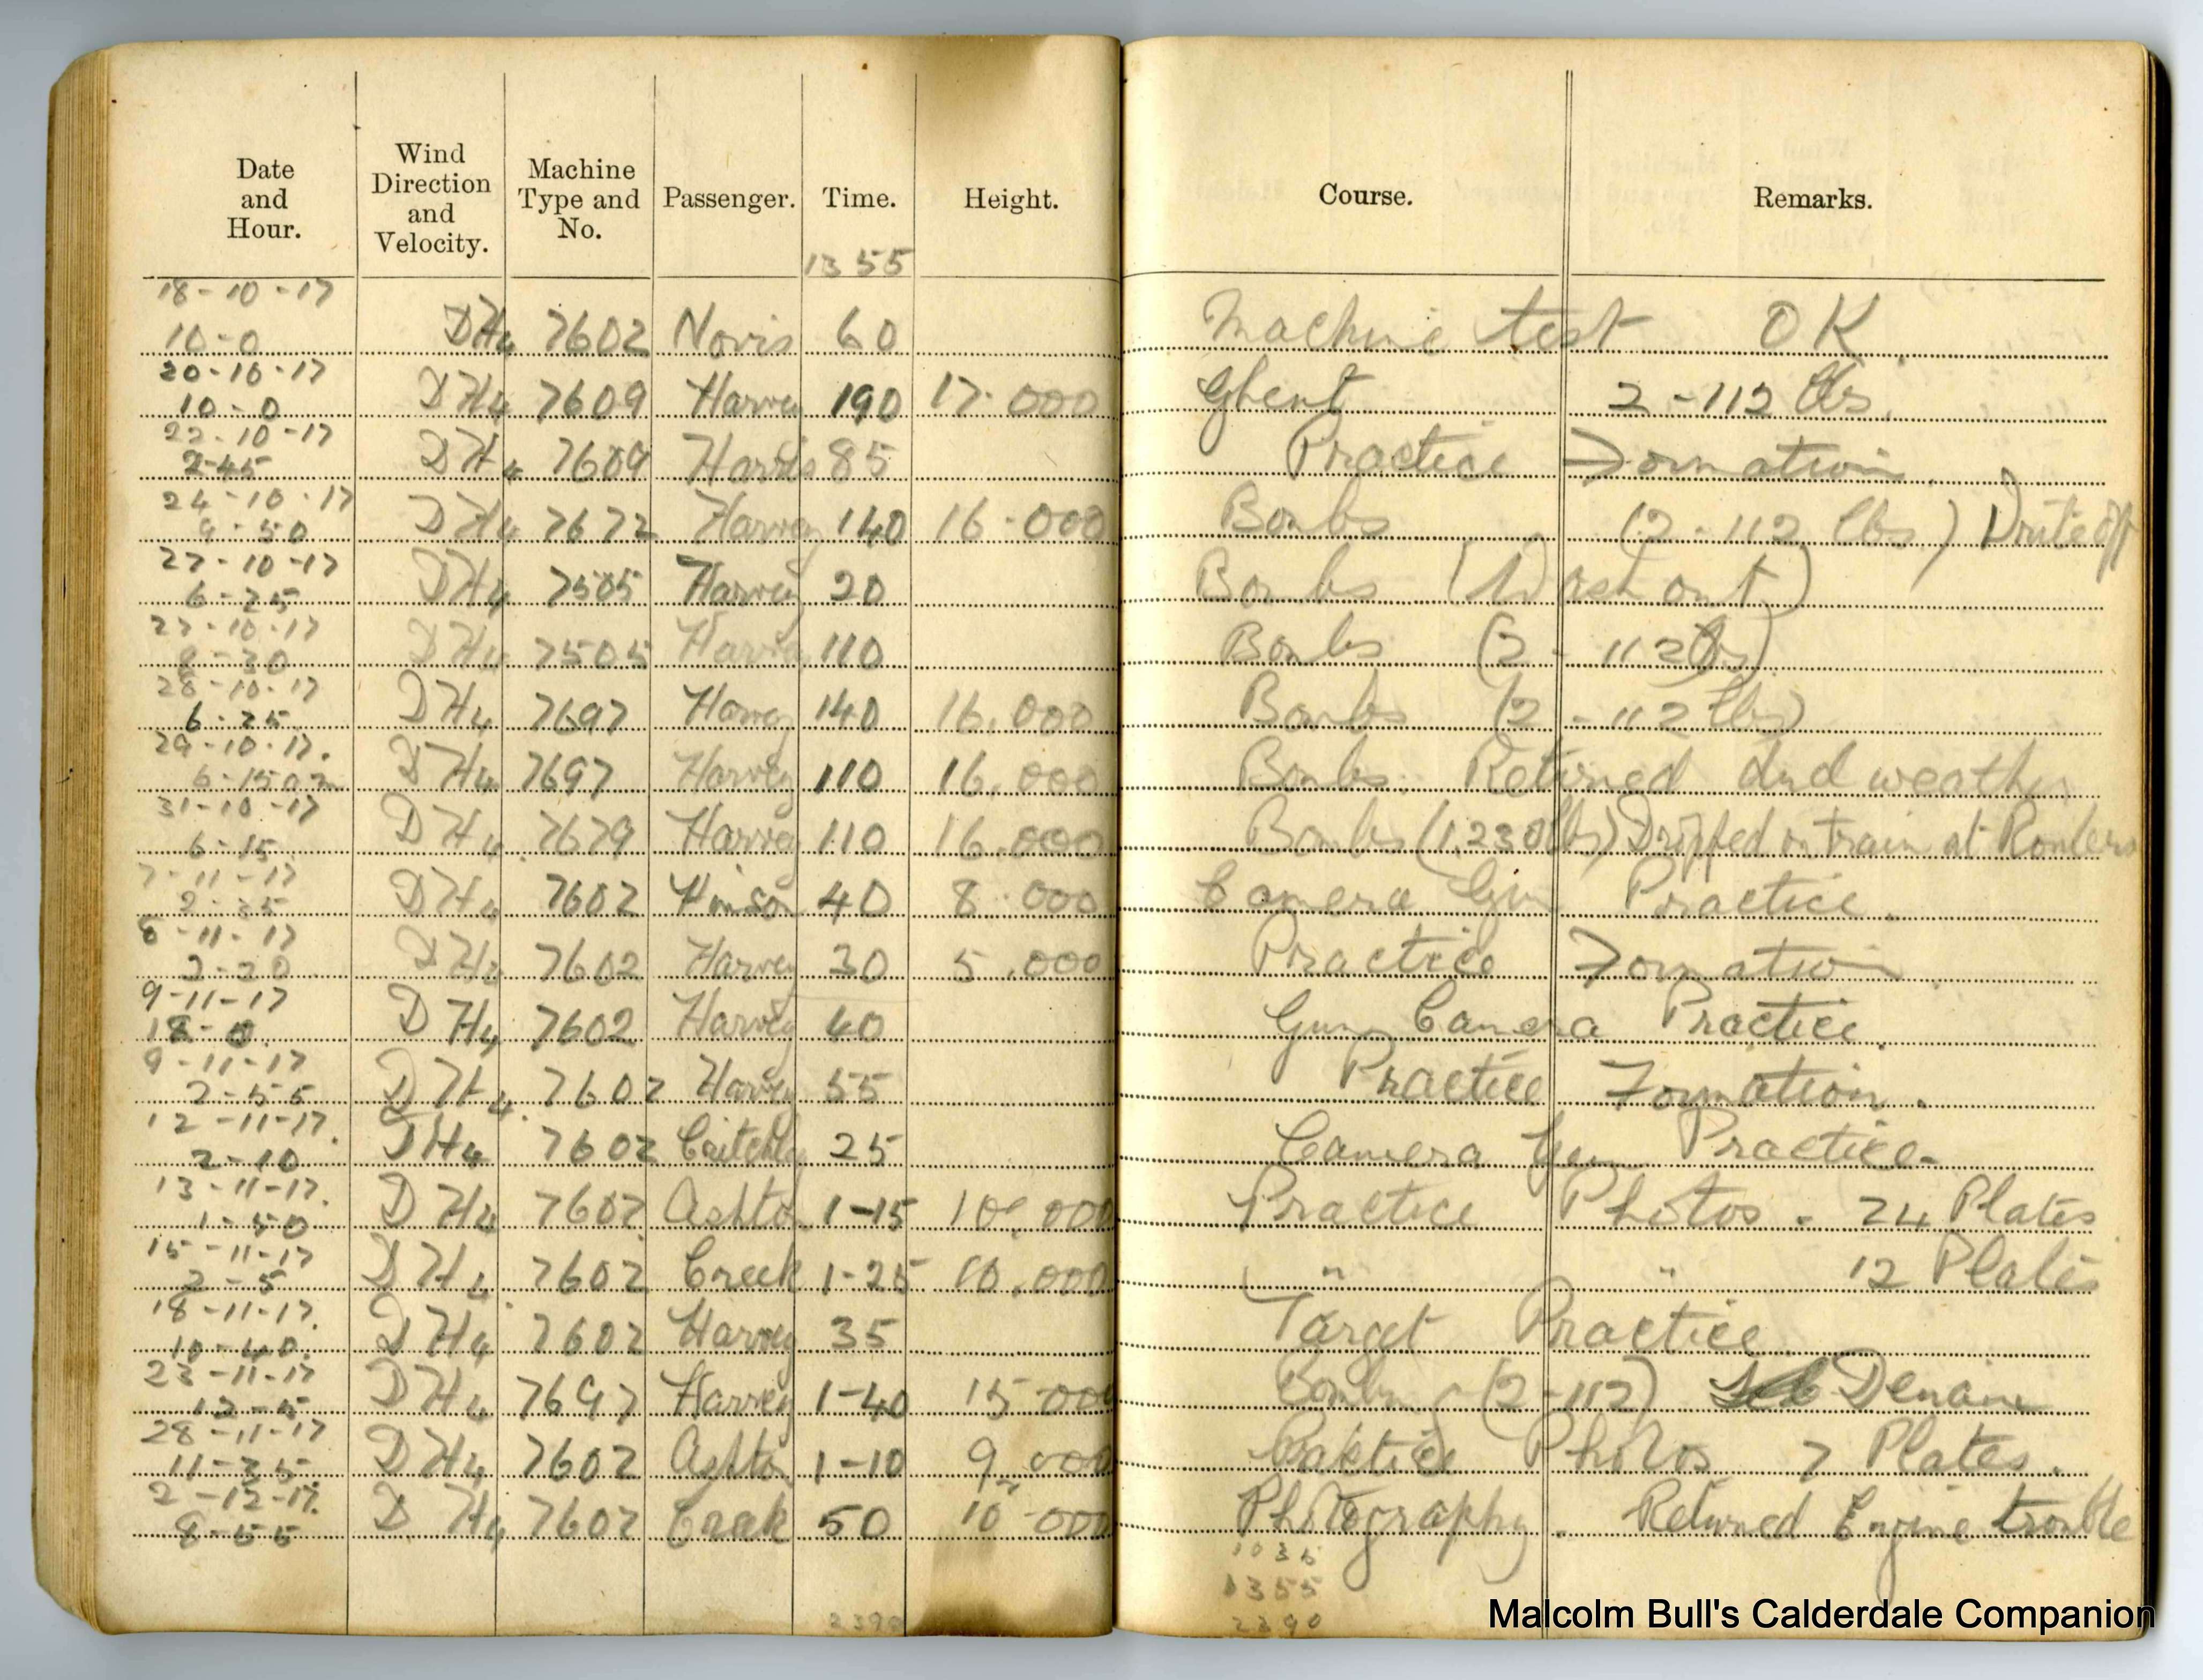 Date and Hour. Wind Direction and Velocity. Machine Type and No. Passenger. Time. Height. Course. Remarks.
1355
18-10-17
10-0 DH4 7602 Novis 60 Machine test OK
20-10-17
10-0 DH4 7609 Harvey 190 17.000 Ghent 2-112 lbs.
22-10-17
2-45 DH4 7609 85 Practice Formation
24-10-17
9-50 DH4 7672 Harvey 140 16.000 Bombs (2-112 lbs)
27-10-17
6-25 DH4 7505 Harvey 20 Bombs (Wash out)
27-10-17
8-30 DH4 7505 Harvey 110 Bombs (2-112 lbs)
28-10-17
6-25 DH4 7697 Harvey 140 16.000 Bombs (2-112 lbs)
29-10-17.
DH4 7697 Harvey 110 16.000 Bombs. Returned dud weather
31-10-17
6-15 DH4 7679 Harvey 110 16.000 Bombs (1.230 lbs) Dropped on train at Roulers
7-11-17
2-35 DH4 7602 Hinson 40 8.000 Camera Gun Practice.
8-11-17
2-20 DH4 7602 Harvey 30 5.000 Practice Formation
9-11-17
DH4 7602 Harvey 40 Gun Camera Practice.
9-11-17
2-55 DH4 7602 Harvey 55 Practice Formation.
12-11-17.
2-10 DH4 7602 Critchly 25 Camera Gun Practice.
13-11-17.
1-50 DH4 7602 Ashton 1-15 10.000 Practice Photos. 24 Plates
15-11-17
2-5 DH4 7602 Creek 1-25 10.000 " " 12 Plates
18-11-17.
10-40. DH4 7602 Harvey 35 Target Practice.
23-11-17
12-5 DH4 7697 Harvey 1-40 15.000 (2-112) Denain
28-11-17
11-35. DH4 7602 Ashton 1-10 9.000 Practice Photos 7 Plates.
2-12-17.
8-55 DH4 7602 50 10.000 Photography. Returned Engine trouble
1035
1355
2390 2390
Malcolm Bull's Calderdale Companion